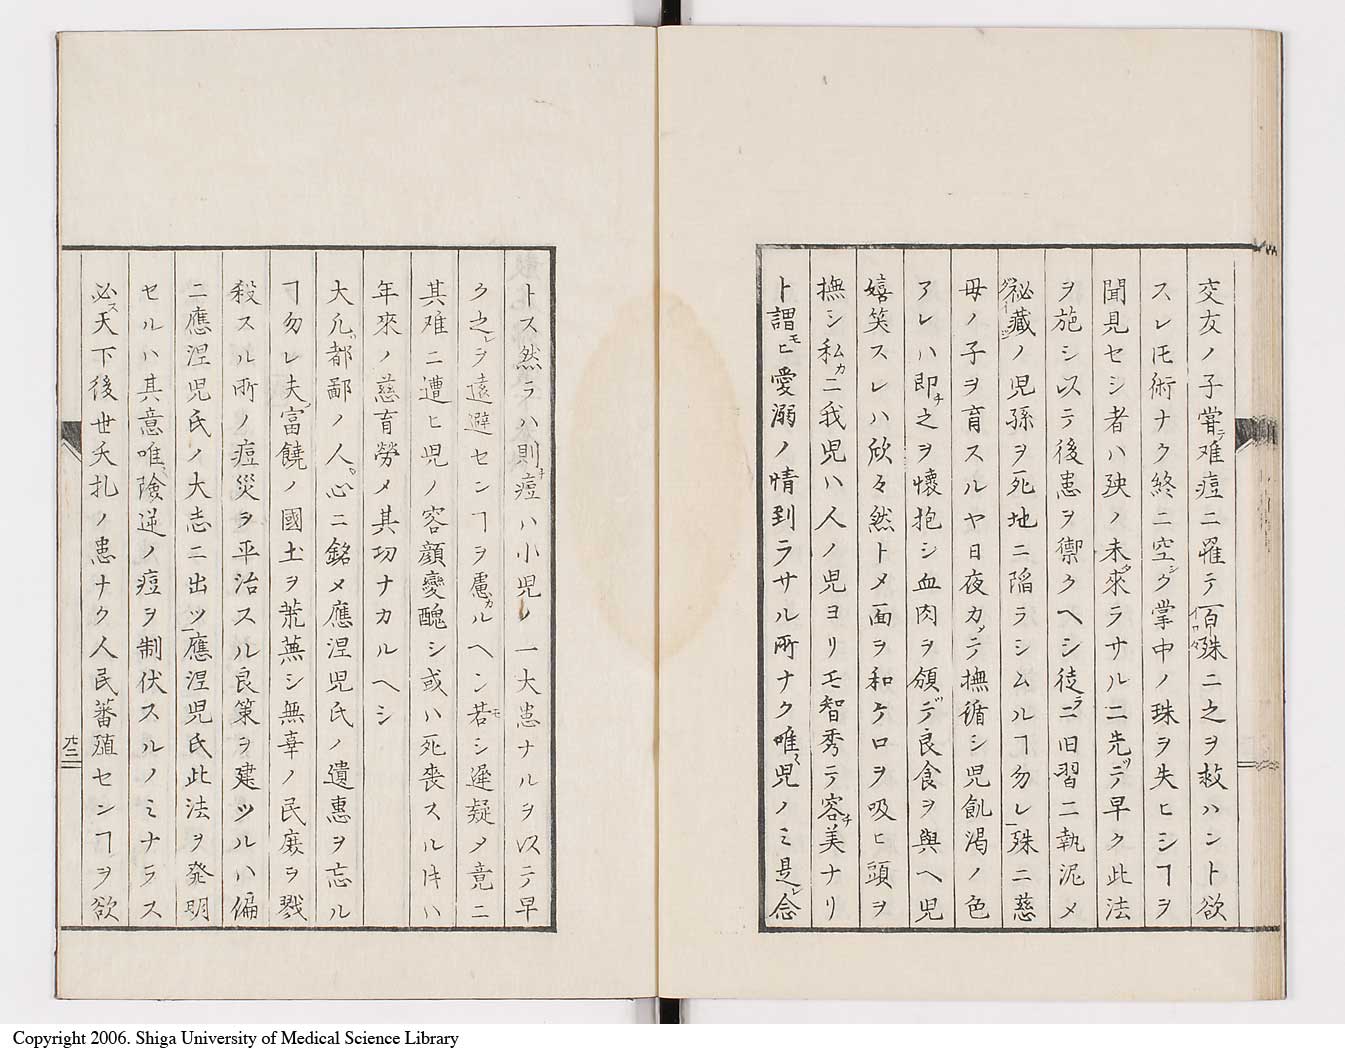 交友ノ子嘗テ难痘ニ罹テ百殊ニ之ヲ救ハント欲
スレ𪜈術ナク終ニ空シク掌中ノ珠ヲ失ヒシヿヲ
聞見セシ者ハ殃ノ未タ來ラサルニ先ツテ早ク此法
ヲ施シ以テ後患ヲ禦クヘシ徒ラニ旧習ニ執泥メ
祕藏ノ児孫ヲ死地ニ陷ラシムルヿ勿レ殊ニ慈
母ノ子ヲ育スルヤ日夜カツテ撫循シ児飢渇ノ色
アレハ即チ之ヲ懷抱シ血肉ヲ頒テ良食ヲ與ヘ児
嬉笑スレハ欣々然トメ面ヲ和ケロヲ吸ヒ頭ヲ
撫シ私カニ我児ハ人ノ児ヨリモ智秀テ容チ美ナリ
ト謂モヒ愛溺ノ情到ラサル所ナク唯ミ児ノミ是レ念
トス然ラハ則チ痘ハ小児ノ一大患ナルヲ以テ早
ク之レヲ遠避センヿヲ慮カルヘン若モシ遲疑メ竟ニ
其难ニ遭ヒ児ノ容顔變醜シ或ハ死喪スル時ハ
年來ノ慈育勞メ其功ナカルヘシ
大凡ソ都鄙ノ人心ニ銘メ應涅児氏ノ遺惠ヲ忘ル
ヿ勿レ夫レ富饒ノ國土ヲ荒蕪シ無辜ノ民庶ヲ戮
殺スル所ノ痘災ヲ平治スル良策ヲ建ツルハ偏
ニ應涅児氏ノ大志ニ出ツ應涅児氏此法ヲ発明
セルハ其意唯險逆ノ痘ヲ制伏スルノミナラス
必ス天下後世夭札ノ患ナク人民蕃殖センヿヲ欲
廿三
Copyright 2006. Shiga University of Medical Science Library